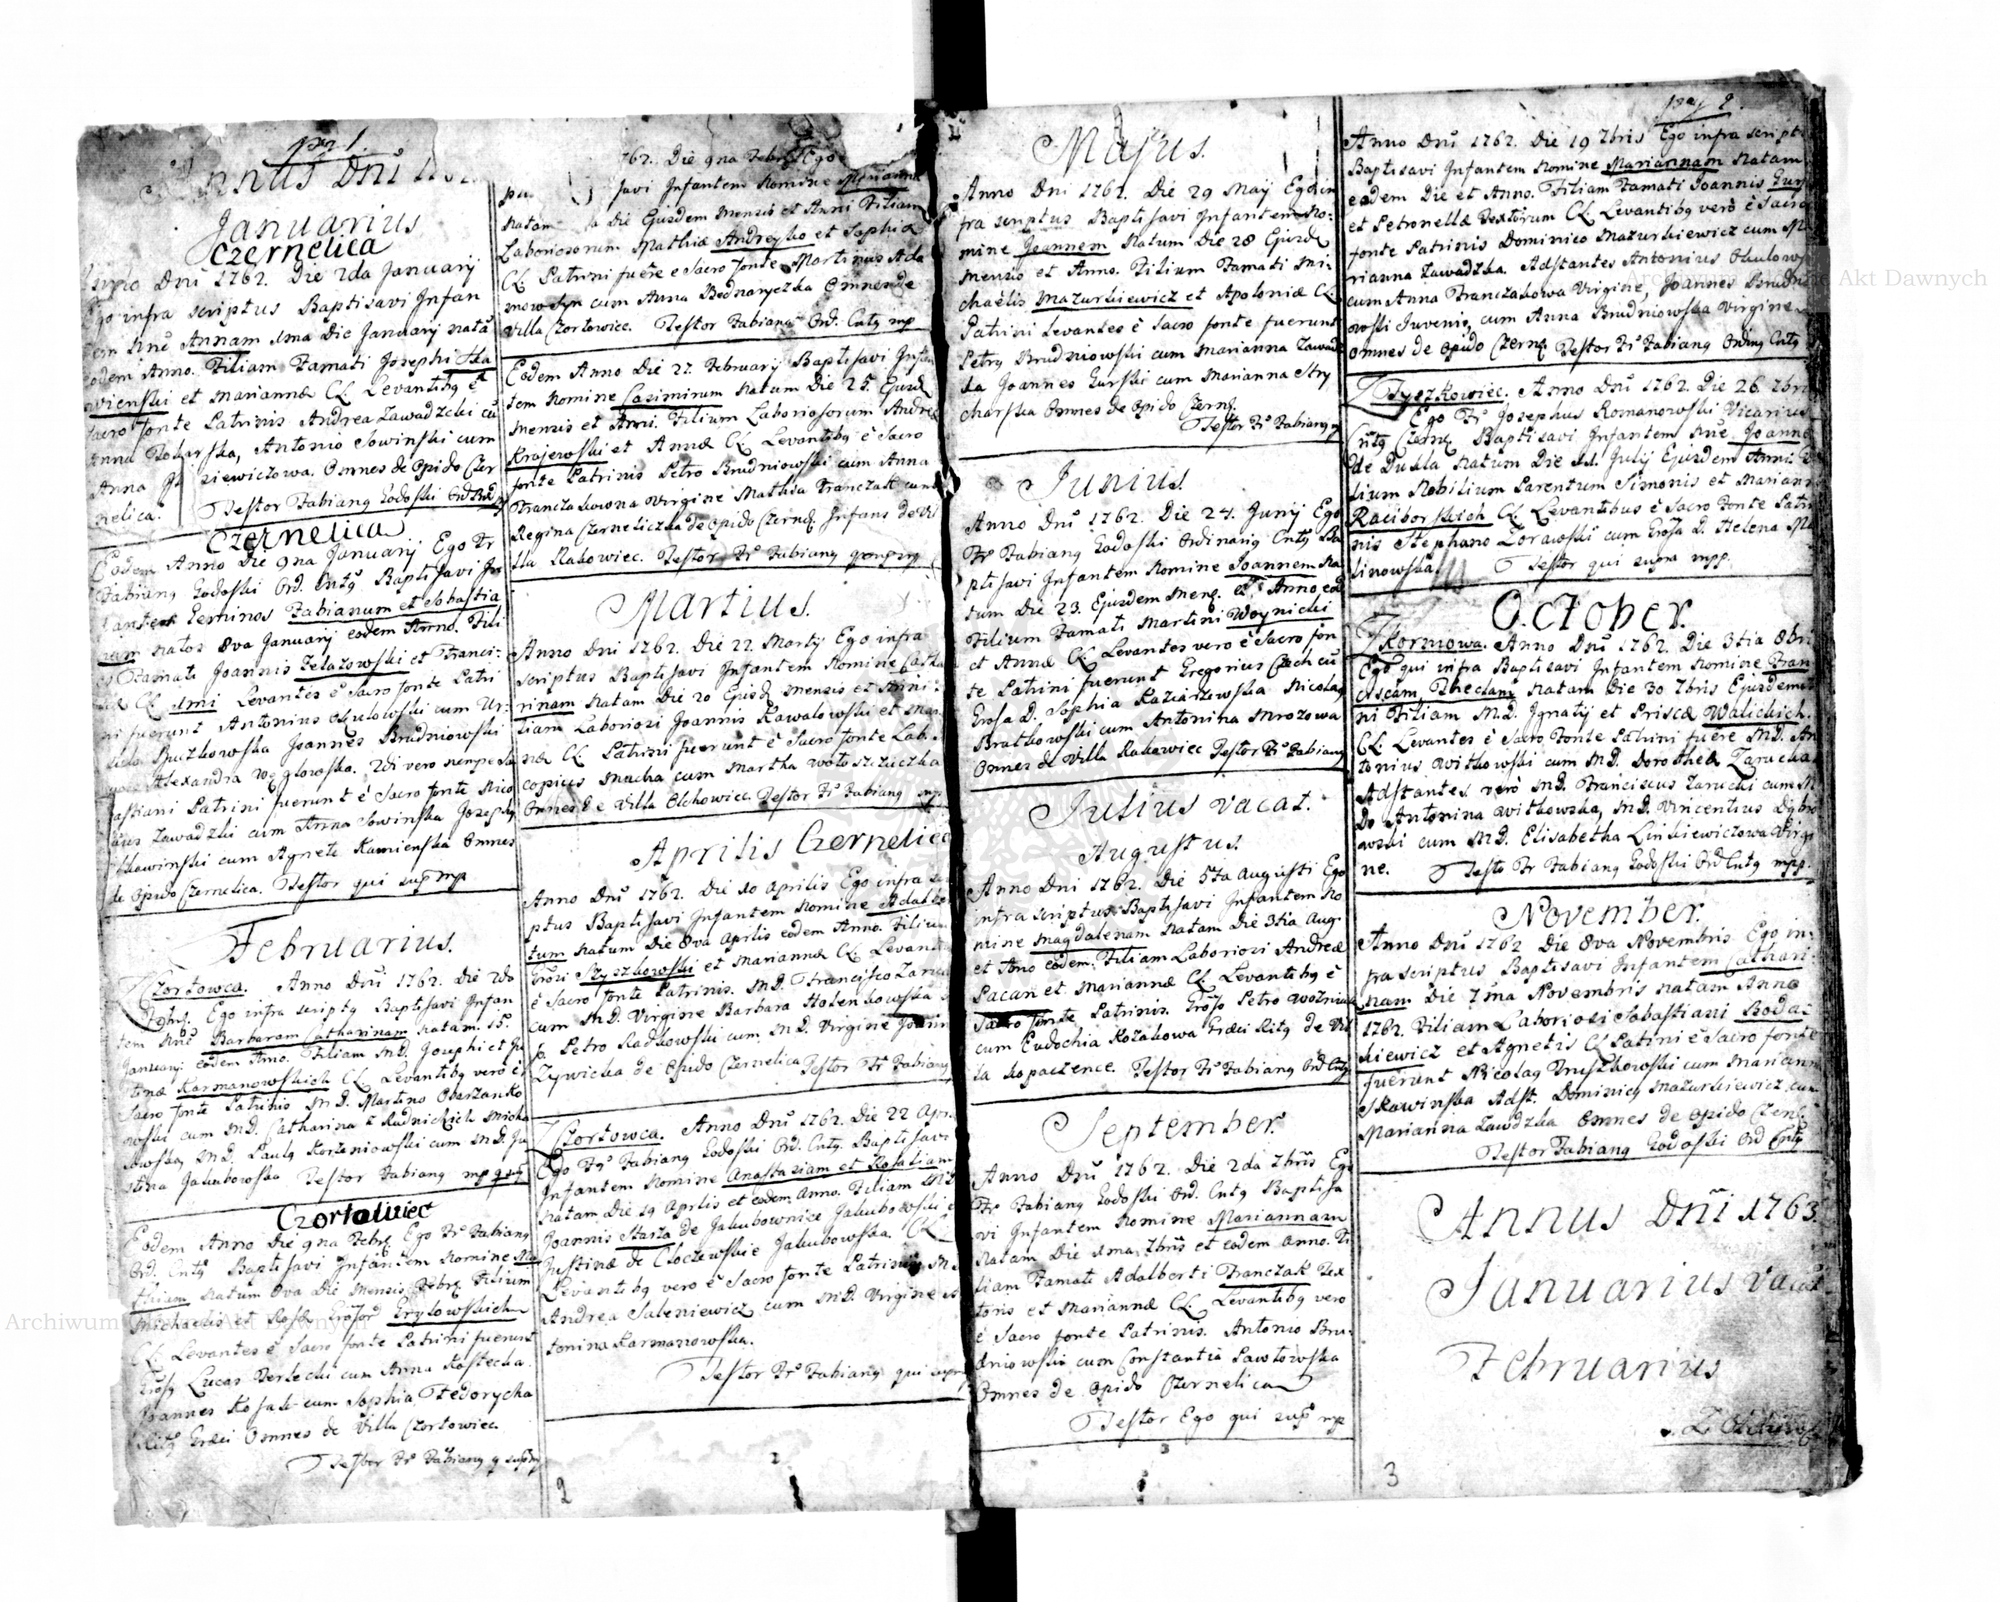 pag 1.
Annus Dni
Januarius
Czernelica
Dnī 1762. Die 2da January
Ego infra scriptus Baptisavi Infan
tem Nn̄e Annam 1ma Die January natā
eodem Anno. Filiam Famati Josephi
et Mariannæ CL Levantibꝗ è
sacro fonte Patrinis Andrea Zawadzki cū
Anna Tokarska, Antonio Sowinski cum
Anna ziewiczowa. Omnes de opido Czer
nelica. Testor Fabianꝗ Godoski Ord
Czernelica
Eodem Anno Die 9na January Ego Fr
Fabianꝗ Godoski Ord. Cntꝗ Baptisavi In
fantes Geminos Fabianum et Sebastia
num natos 8va January eodem Anno. Fili
os Famati Joannis Zelazowski et Franci:
CL Levantes è sacro fonte Patri
ni fuerunt Antonius Okulowski cum Ur:
Pruszkowska Joannes Brudniowski
Alexandra 2di vero nempe Se
bastiani Patrini fuerunt è sacro fonte Nico
laus Zawadzki cum Anna Sowinska Josephꝗ
Skawinski cum Agnete Kamienska Omnes
de opido Czernelica. Testor qui sup mp
Februarius.
Czortowca. Anno Dnī 1762. Die 2do
Febrꝗ. Ego infra scriptꝗ Baptisavi Infan
tem Nn̄e Barbaram Catharinam natam 15.
January eodem Anno. Filiam M.D. Josephi et Ju
stinæ Karmanowskich CL Levantibꝗ verò è
sacro fonte Patrinis M.D. Martino
owski cum M.D. Catharina Rudnickich
M.D. Paulꝗ Korzeniowski cum M.D. Ju
stina Jakubowska Testor Fabianꝗ mp
Czortowiec
Eodem Anno Die 9na Febr. Ego Fr Fabianꝗ
Ord. Cntꝗ Baptisavi Infantem Nomine Ma
thiam natum 8va Die Mensis Febrꝗ Filium
Michaelis et Grylowskich
CL Levantes è sacro fonte Patrini fuerunt
Lucas cum Anna
Joannes Kosak cum Sophia Fedorycha
Ritꝗ Græci Omnes de Villa Czortowiec
Testor Fr Fabianꝗ q supra
762. Die 9na Febrꝗ Ego
savi Infantem Nomine Mariannā
natam Die Ejusdem Mensis et Anni Filiam
Laboriosorum Mathiæ Andreyko et Sophiæ
CL Patrini fuēre è sacro fonte Martinus Ada
mowsyn cum Anna Bednaryczka Omnes de
Villa Czortowiec. Testor Fabianꝗ Ord. Cntꝗ mp
Eodem Anno Die 27. February Baptisavi Infan
tem Nomine Casimirum natum Die 25. Ejusd
Mensis et Anni. Filium Laboriosorum Andreæ
Krajewski et Annæ CL Levantibꝗ è sacro
fonte Patrinis Petro Brudniowski cum Anna
Franczakowna Virgine Mathia Franczak cum
Regina Czerneliczka de opido Czernꝗ Infans de Vi
lla Rakowiec. Testor Fr Fabianꝗ
Martius.
Anno Dni 1762. Die 22. Marty Ego infra
scriptus Baptisavi Infantem Nomine Catha
rinam natam Die 20 Ejusd Mensis et Anni
liam Laboriosi Joannis Kawalowski et Mari
næ CL Patrini fuerunt è sacro fonte Lab.
copius Mucha cum Martha Wołoszczuczka
Omnes de Villa Olchowiec. Testor Fr Fabianꝗ mp
Aprilis Czernelica
Anno Dnī 1762. Die 10 Aprilis Ego infra scri
ptus Baptisavi Infantem Nomine Adalber
tum natum Die 8va Aprilis eodem Anno. Filium
Grosi Szyszkowski et Mariannæ CL Levanti
è sacro fonte Patrinis. M.D. Francisco
cum M.D. Virgine Barbara Holenkowska
Petro Radkowski cum M.D. Virgine Joann
Zywicka de opido Czernelica Testor Fr Fabianꝗ
Czortowca. Anno Dnī 1762. Die 22 Apr.
Ego Fr Fabianꝗ Godoski Ord. Cntꝗ. Baptisavi
Infantem Nomine Anastasiam et Rosaliam
natam Die 19 Aprilis et eodem Anno. Filiam M.D
Joannis Starza de Jakubownice Jakubowski et
Justinæ de Cłoczewskie Jakubowska. CL
Levantibꝗ vero è sacro fonte Patrinis M.D
Andrea Saleniewicz cum M.D. Virgine
tonina Karmanowska.
Testor Fr Fabianꝗ qui supra
2
Majus.
Anno Dni 1762. Die 29 May Ego in
fra scriptus Baptisavi Infantem No
mine Joannem natum Die 28 Ejusd
Mensis et Anno. Filium Famati Mi:
chaëlis Mazurkiewicz et Apoloniæ CL
Patrini Levantes è sacro fonte fuerunt
Petrꝗ Brudniowski cum Marianna Zawadz
ka Joannes Gurski cum Marianna Stry
charska Omnes de opido Czernꝗ.
Testor Fr Fabianꝗ
Junius
Anno Dnī 1762. Die 24. Juny Ego
Fr Fabianꝗ Godoski Ordinariꝗ Cntꝗ Ba
ptisavi Infantem Nomine Joannem na
tum Die 23. Ejusdem Mens. et Anno eod
Filium Famati Martini Woynicki
et Annæ CL Levantes vero è sacro fon
te Patrini fuerunt Gregorius Czech cū
Grosa D. Sophia Kaziarzowska Nicolaꝗ
Bratkowski cum Antonina Mrozowa
Omnes de Villa Rakowiec Testor Fr Fabianꝗ
Julius vacat.
Augustus.
Anno Dni 1762. Die 5ta Augusti Ego
infra scriptus Baptisavi Infantem No
mine Magdalenam natam Die 3tia Aug.
et Ano eodem. Filiam Laboriosi Andreæ
Pacan et Mariannæ CL Levantibꝗ è
sacro fonte Patrinis. Groso Petro Wozniak
cum Eudochia Kozakowa Græci Ritꝗ de Vil
la Kopaczence. Testor Fr Fabianꝗ Ord Cntꝗ
September.
Anno Dnī 1762. Die 2da 7bris Ego
Fr Fabianꝗ Godoski Ord. Cntꝗ Baptisa
vi Infantem Nomine Mariannam
natam Die 1ma 7bris et eodem Anno. Fi
liam Famati Adalberti Franczak Tex
toris et Mariannæ CL Levantibꝗ vero
è sacro fonte Patrinis. Antonio Bru:
dniowski cum Constantia Pawłowska
Omnes de opido Czernelica
Testor Ego qui sup mp
pag 2.
Anno Dnī 1762. Die 19 7bris Ego infra script
Baptisavi Infantem Nomine Mariannam natam
eadem Die et Anno. Filiam Famati Joannis Gurs
et Petronellæ Textorum CL Levantibꝗ verò è sacro
fonte Patrinis Dominico Mazurkiewicz cum Ma
rianna Zawadzka. Adstantes Antonius Okulows
cum Anna Franczakowa Virgine, Joannes Brudni
owski Juvenis, cum Anna Brudniowska Virgine
omnes de opido Czernꝗ Testor Fr Fabianꝗ Ordinꝗ Cntꝗ
Tyszkowiec. Anno Dnī 1762. Die 26. 7bris
Ego Fr Josephus Romanowski Vicarius
Cntꝗ Czernꝗ Baptisavi Infantem Nn̄e Joannē
de Dukla natum Die 11. July Ejusdem Anni Fi
lium Nobilium Parentum Simonis et Mariann
Raciborskich CL Levantibus è sacro fonte Patri
nis Stephano Zorawski cum Grosa D. Helena Ma
linowska. Testor qui supra mpp.
October.
Kormowa. Anno Dnī 1762. Die 3tia 8bri
Ego qui infra Baptisavi Infantem Nomine Fran
ciscam Theclam natam Die 30 7bris Ejusdem
ni Filiam M.D. Ignatij et Priscæ Walickich.
CL Levantes è sacro fonte Patrini fuēre M.D. An
tonius Witkowski cum M.D. Dorothea Zarucka
Adstantes verò M.D. Franciscus Zarucki cum M
Do Antonina Witkowska, M.D. Vincentius Dąbro
wski cum M.D. Elisabetha Linkiewiczowa Virgi
ne. Testor Fr Fabianꝗ Godoski Ord Cntꝗ mpp.
November.
Anno Dnī 1762 Die 8va Novembris. Ego in:
fra scriptus Baptisavi Infantem Cathari:
nam Die 7ma Novembris natam Anno
1762. Filiam Laboriosi Sabastiani Boda:
kiewicz et Agnetis CL Patini è sacro fonte
fuerunt Nicolaꝗ Pruszkowski cum Mariann
Skawinska Adst. Dominicꝗ Mazurkiewicz cum
Marianna Zawdzka Omnes de opido Czern.
Testor Fabianꝗ Godoski Ord Cntꝗ
Annus Dnī 1763.
Januarius vacat
Februarius
3
Archiwum Główne Akt Dawnych
Archiwum Akt Dawnych